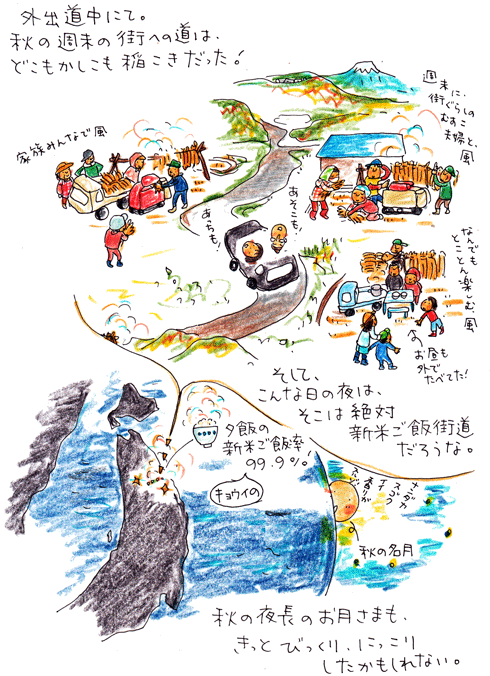 外出道中にて。
秋の週末の街への道は、
どこもかしこも稲こきだった!
週末に、
街ぐらしの
むすこ
夫婦と、
風
家族みんなで風
あそこも!
あちも!
なんでも
とことん楽しむ、
風
お昼も
外で
たべてた!
そして、
こんな日の夜は、
そこは絶対
新米ご飯街道
だろうな。
夕飯の
新米ご飯率
99.9%!
キョウイの
秋の名月
秋の夜長のお月さまも、
きっと びっくり、にっこり
したかもしれない。